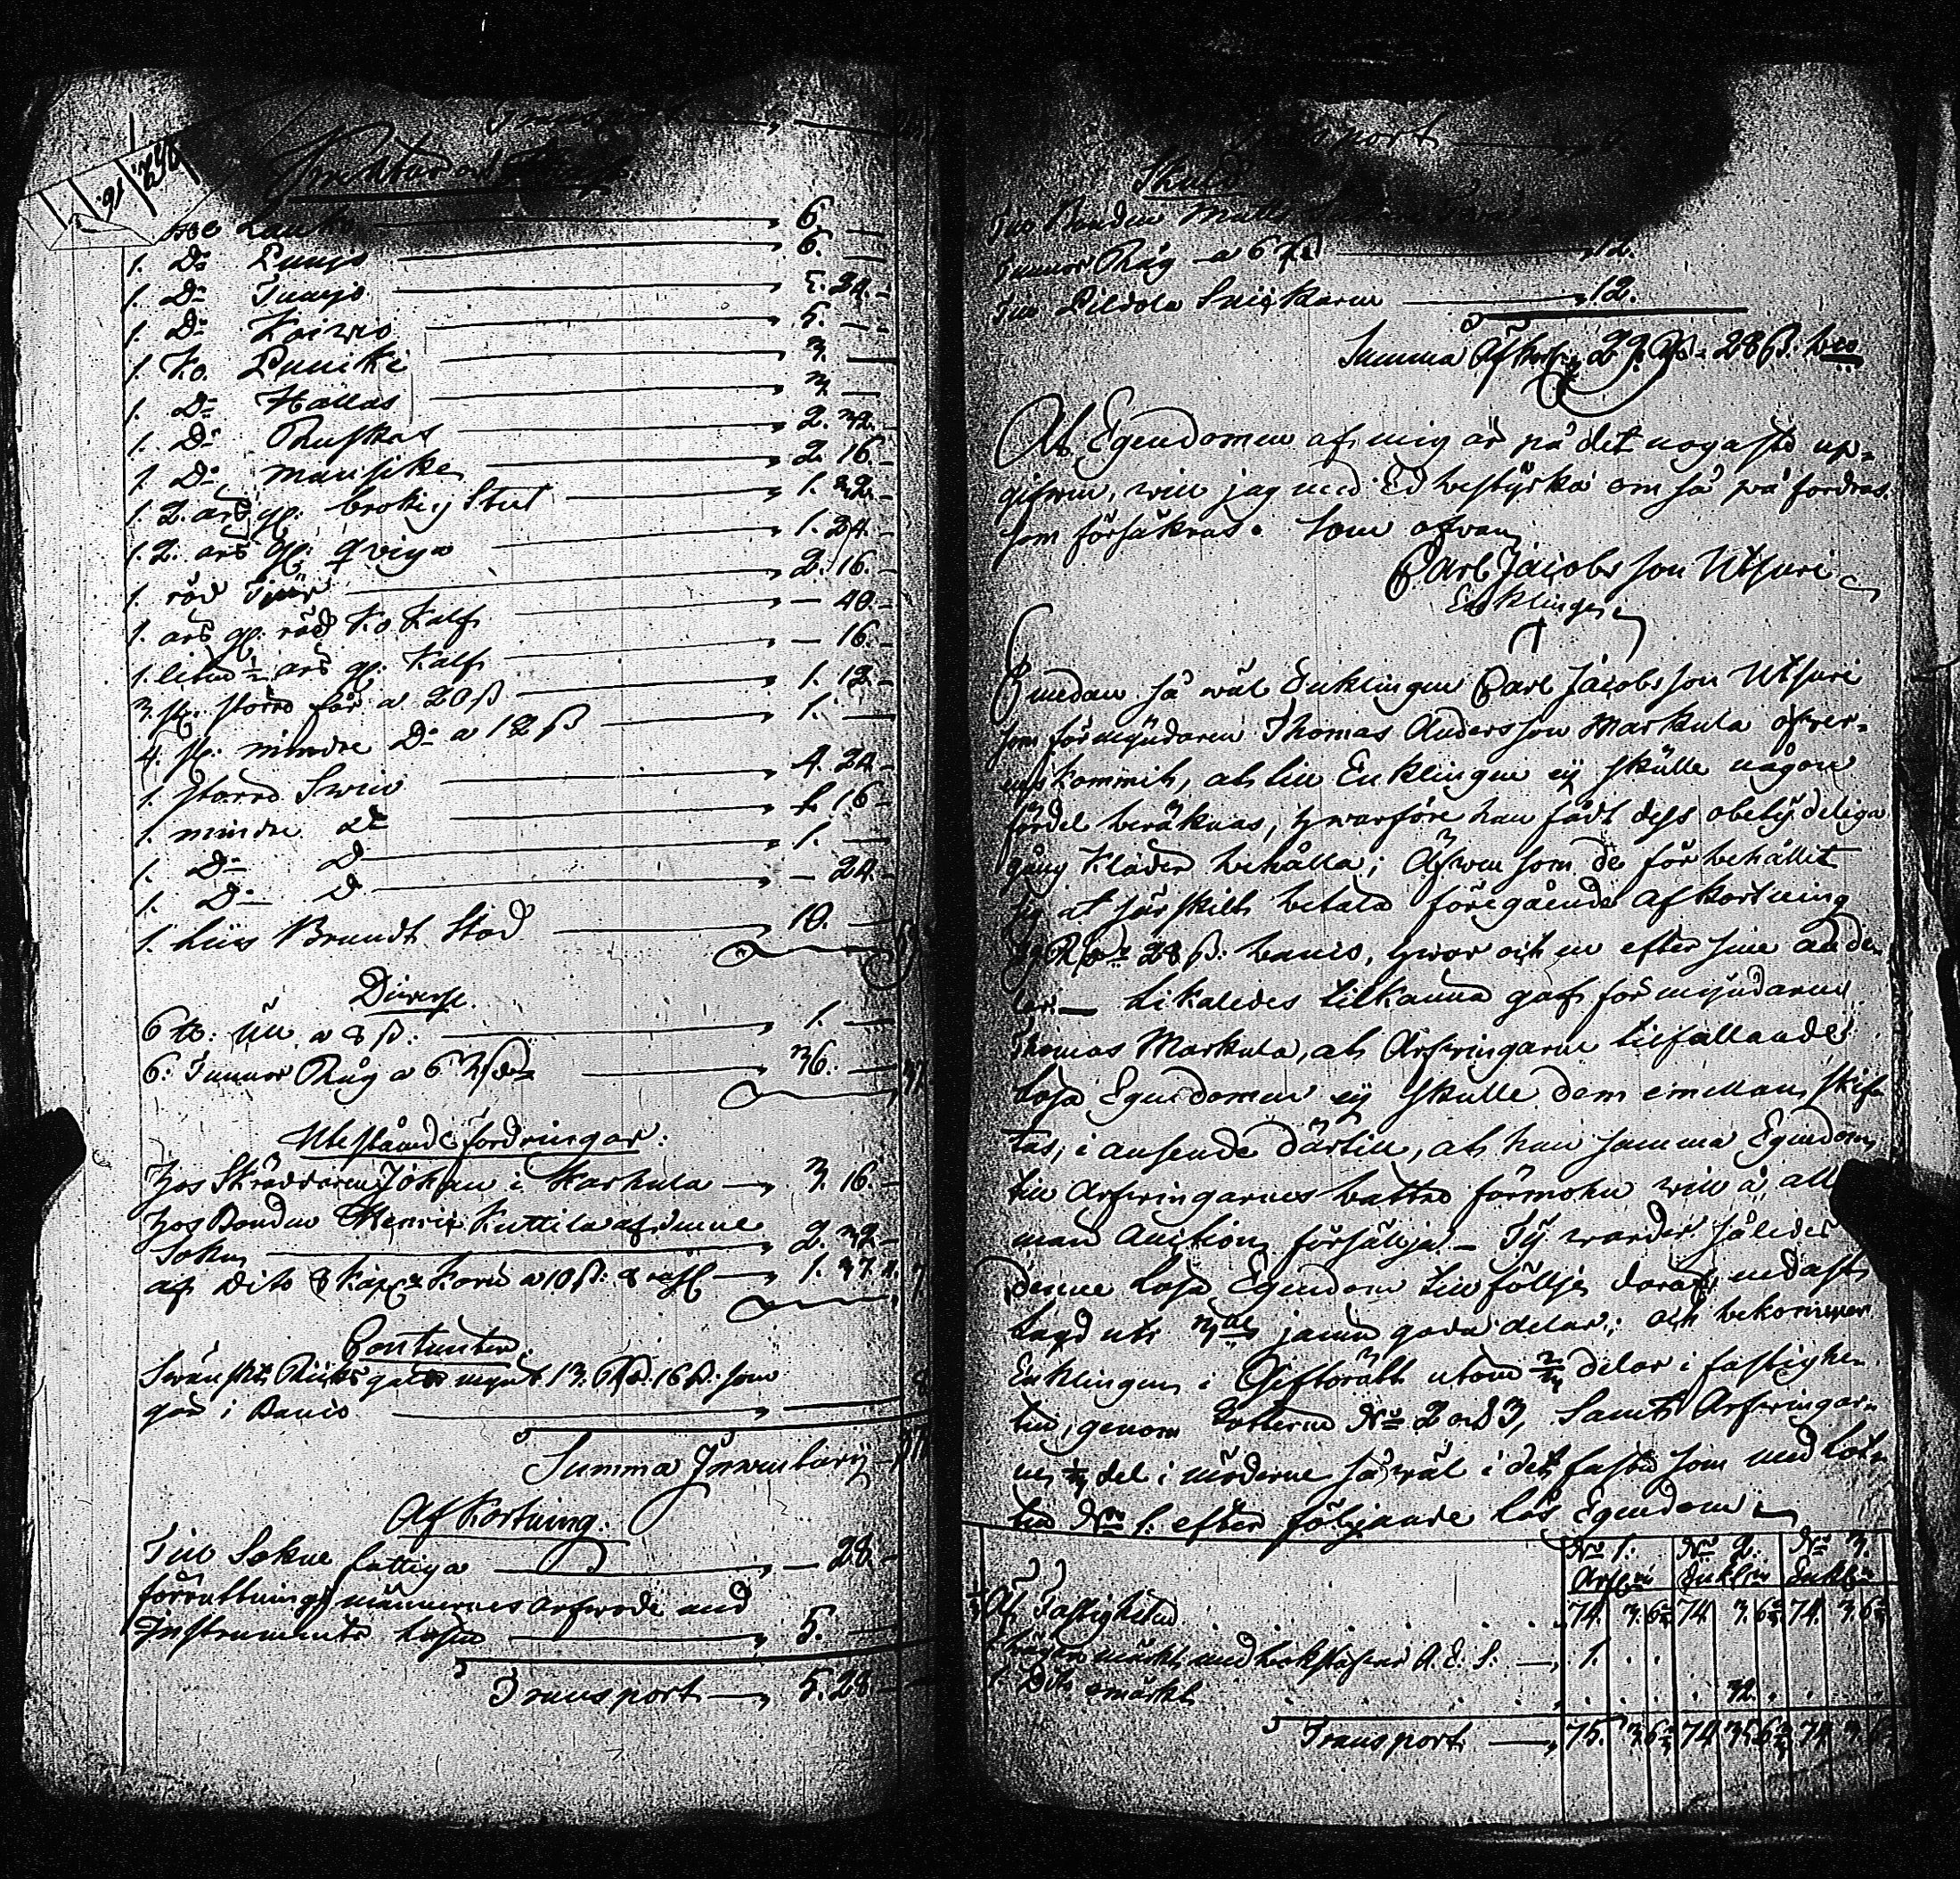 Transport
Kreatur och
Oxe Lauk 6. —
1. D:o Punjo 6. —
1. D:o Tuayo 5. 24. -
1. D:o Koivio 5. —
1. Ko. Puniki 3. —
1. D:o Hallas 3. —
1. D:o Ruskas 2. 32. -
1. D:o Mansike 2. 16. -
1. 2. års gl: brokig Stut 1. 32. -
1. 2. års gl: qviga 1. 24. -
1. röd Tjur 2. 16. -
1. års gl. röd Ko Kalf — 40. -
1. liten ½ års gl. Kalf — 16. -
3. st: större får a 20 ß 1. 12. -
4. st: mindre D:o a 12 ß 1. —
1. större Swin 4. 24. -
1. mindre d:o 16 -
1. D:o D:o 1. —
1. D:o D:o — 24. -
1. Liius Brandt Stod 10. —
Diverse.
6 tt: Ull a 8 ß: 1. —
6: Tunnor Råg a 6 Rd:r 36. — 37.
Utestående fordringar:
hos Skräddaren Johan i Karhula 3. 16. -
hos Bonden Henric Kuttila af denne
Sokn 2. 32 -
af Dito 8 kap:r Korn a 10 ß: 1. 37. 7
Contanter.
Swänskt Riiks gälds mynt 13. Rd: 16 ß. som
gör i Banco
Summa Inwentarij
Afkortning:
Till Sokne fattiga — 28. -
förrättnings männernes arfwode med
Instruments lösen 5. —
Transport 5. 28. -
Transport
Skuld
Till Bonden Matts
Tunnor Råg a 6 Rd 12.
Till Pildola Snickaren 12.
Summa Afkort: 29 Rd. 28 ß. b:co
At Egendomen af mig är på det nogaste up-
gifwen, will jag med Ed bestyrka om så på fordras.
som försäkras. Som ofwan
Carl Jacobsson Utsuri
Enklingen
Emedan så wäl Enklingen Carl Jacobsson Utsuri
som förmyndaren Thomas Andersson Markula öfwer-
ens kommit, at till Enklingen ej skulle någon
fördel beräknas, hwarföre han fådt dess obetydeliga
gång Kläder behålla; Äfwen som de förbehållit
sig at särskilt betala föregående afkortning
29 Rd:r 28 ß: banco, hwar och en efter sine ande-
lar — Likaledes tilkänna gaf förmyndaren
Thomas Markula, at Arfwingarne tilfallande
lösa Egendomen ej skulle dem emellan skif-
tas, i anseende därtill, at han samma Egendom
till Arfwingarnes bättre förmohn will å all-
män Auction försälja — Ty warder således
denne lösa Egendom till följe daraf endast
lagd uti 3:ne jämn goda delar; och bekommer
Enklingen i Giftorätt utom ⅔ delar i fastighe-
ten, genom Lotterne N:o 2 och 3, Samt Arfwingar-
ne ⅓ del i möderne så wäl i det fasta som med Lot-
ten N:o 1. efter följande lös Egendom
N:o 1. N:o 2. N:o 3.
Arfwin Enklin Enklin
Af Fastigheten 74. 3. 6⅔ 74. 3. 6⅔ 74. 3. 6⅔
märkt med bokstäfwer A. E. S. 1. . .
1. Dito omärkt . . . . 32. . . . .
Transport 75. 3. 6⅔ 74. 35. 6⅔ 74. 3. 6⅔